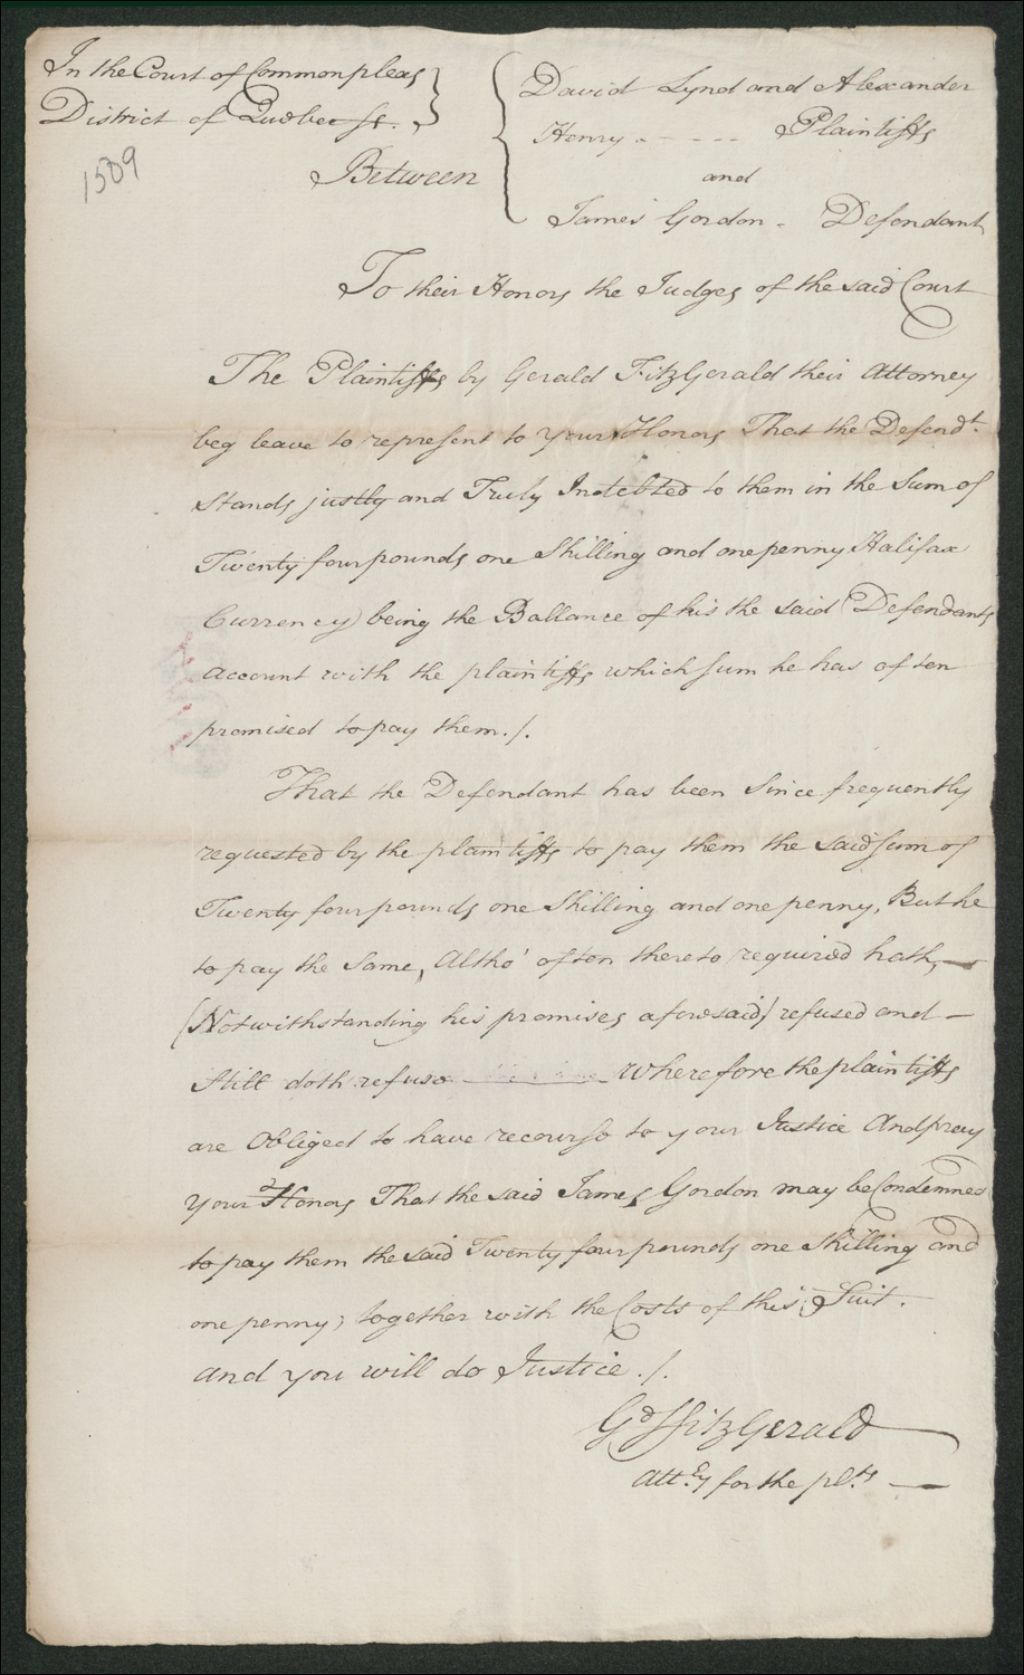 In the Court of Commonpleas
District of Quebec ss.
1509
Between
David Lynd and Alexander
Henry - - - - Plaintiffs
and
James Gordon - Defendant
To their Honors the Judges of the said Court
The Plaintiffs by Gerald FitzGerald their Attorney
beg leave to represent to your Honors That the Defend.t
Stands justly and Truly Indebted to them in the Sum of
Twenty four pounds one Shilling and one penny Halifax
Currency) being the Ballance of his the said Defendants
Account with the plaintiffs which sum he has often
promised to pay them./.
That the Defendant has been Since frequently
requested by the plaintiffs to pay them the said sum of
Twenty four pounds one Shilling and one penny, But he
to pay the Same, Altho' often thereto required hath, —
(Notwithstanding his promises aforesaid) refused and —
Still doth refuse Wherefore the plaintiffs
are Obliged to have recourse to your Justice And pray
your Honors That the said James Gordon may be Condemned
to pay them the said Twenty four pounds one Shilling and
one penny; together with the Costs of this Suit.
and you will do Justice ./.
Gd FitzGerald
Att.ey for the pl.ts —